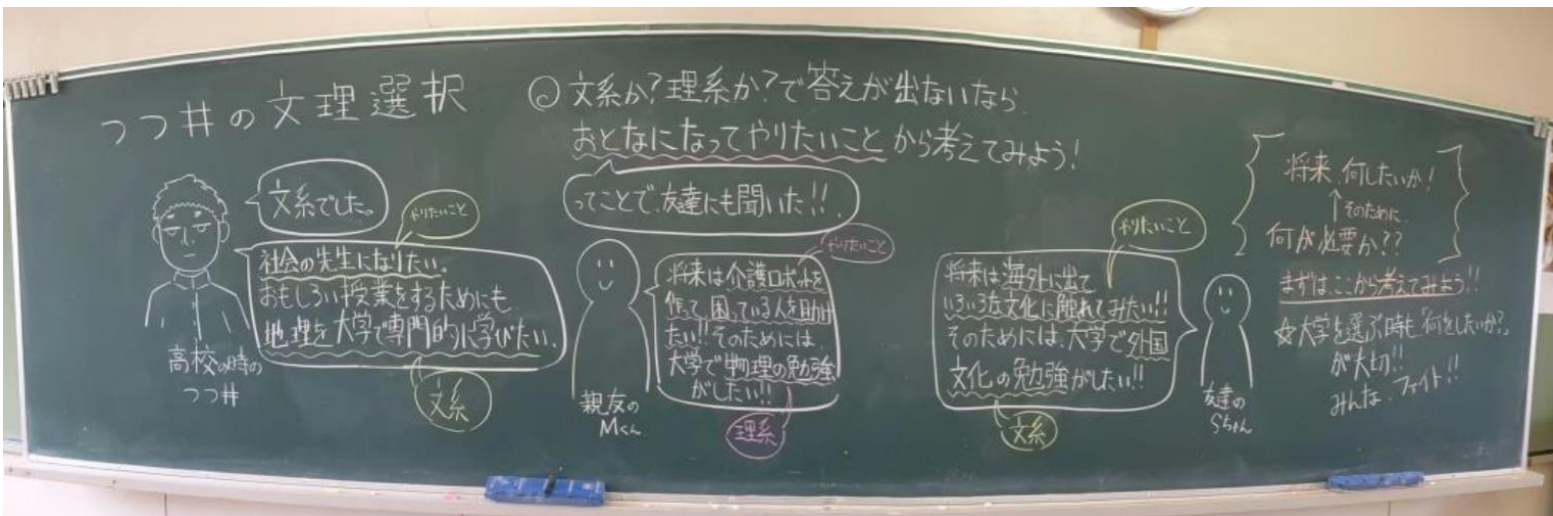 つつ井の文理選択
◎文系か?理系か?で答えが出ないなら
おとなになってやりたいことから考えてみよう!
ってことで、友達にも聞いた!!
文系でした。
やりたいこと
社会の先生になりたい。
おもしろい授業をするためにも
地理を大学で専門的に学びたい。
文系
高校の時の
つつ井
やりたいこと
将来は介護ロボットを
作って、困っている人を助け
たい!!そのためには、
大学で物理の勉強
がしたい!!
理系
親友の
Mくん
やりたいこと
将来は海外に出て
いろいろな文化に触れてみたい!!
そのためには、大学で外国
文化の勉強がしたい!!
文系
友達の
Sちゃん
将来、何したいか!
↑そのために
何が必要か??
まずは、ここから考えてみよう!!
☆大学を選ぶ時も「何をしたいか?」
が大切!!
みんな、ファイト!!